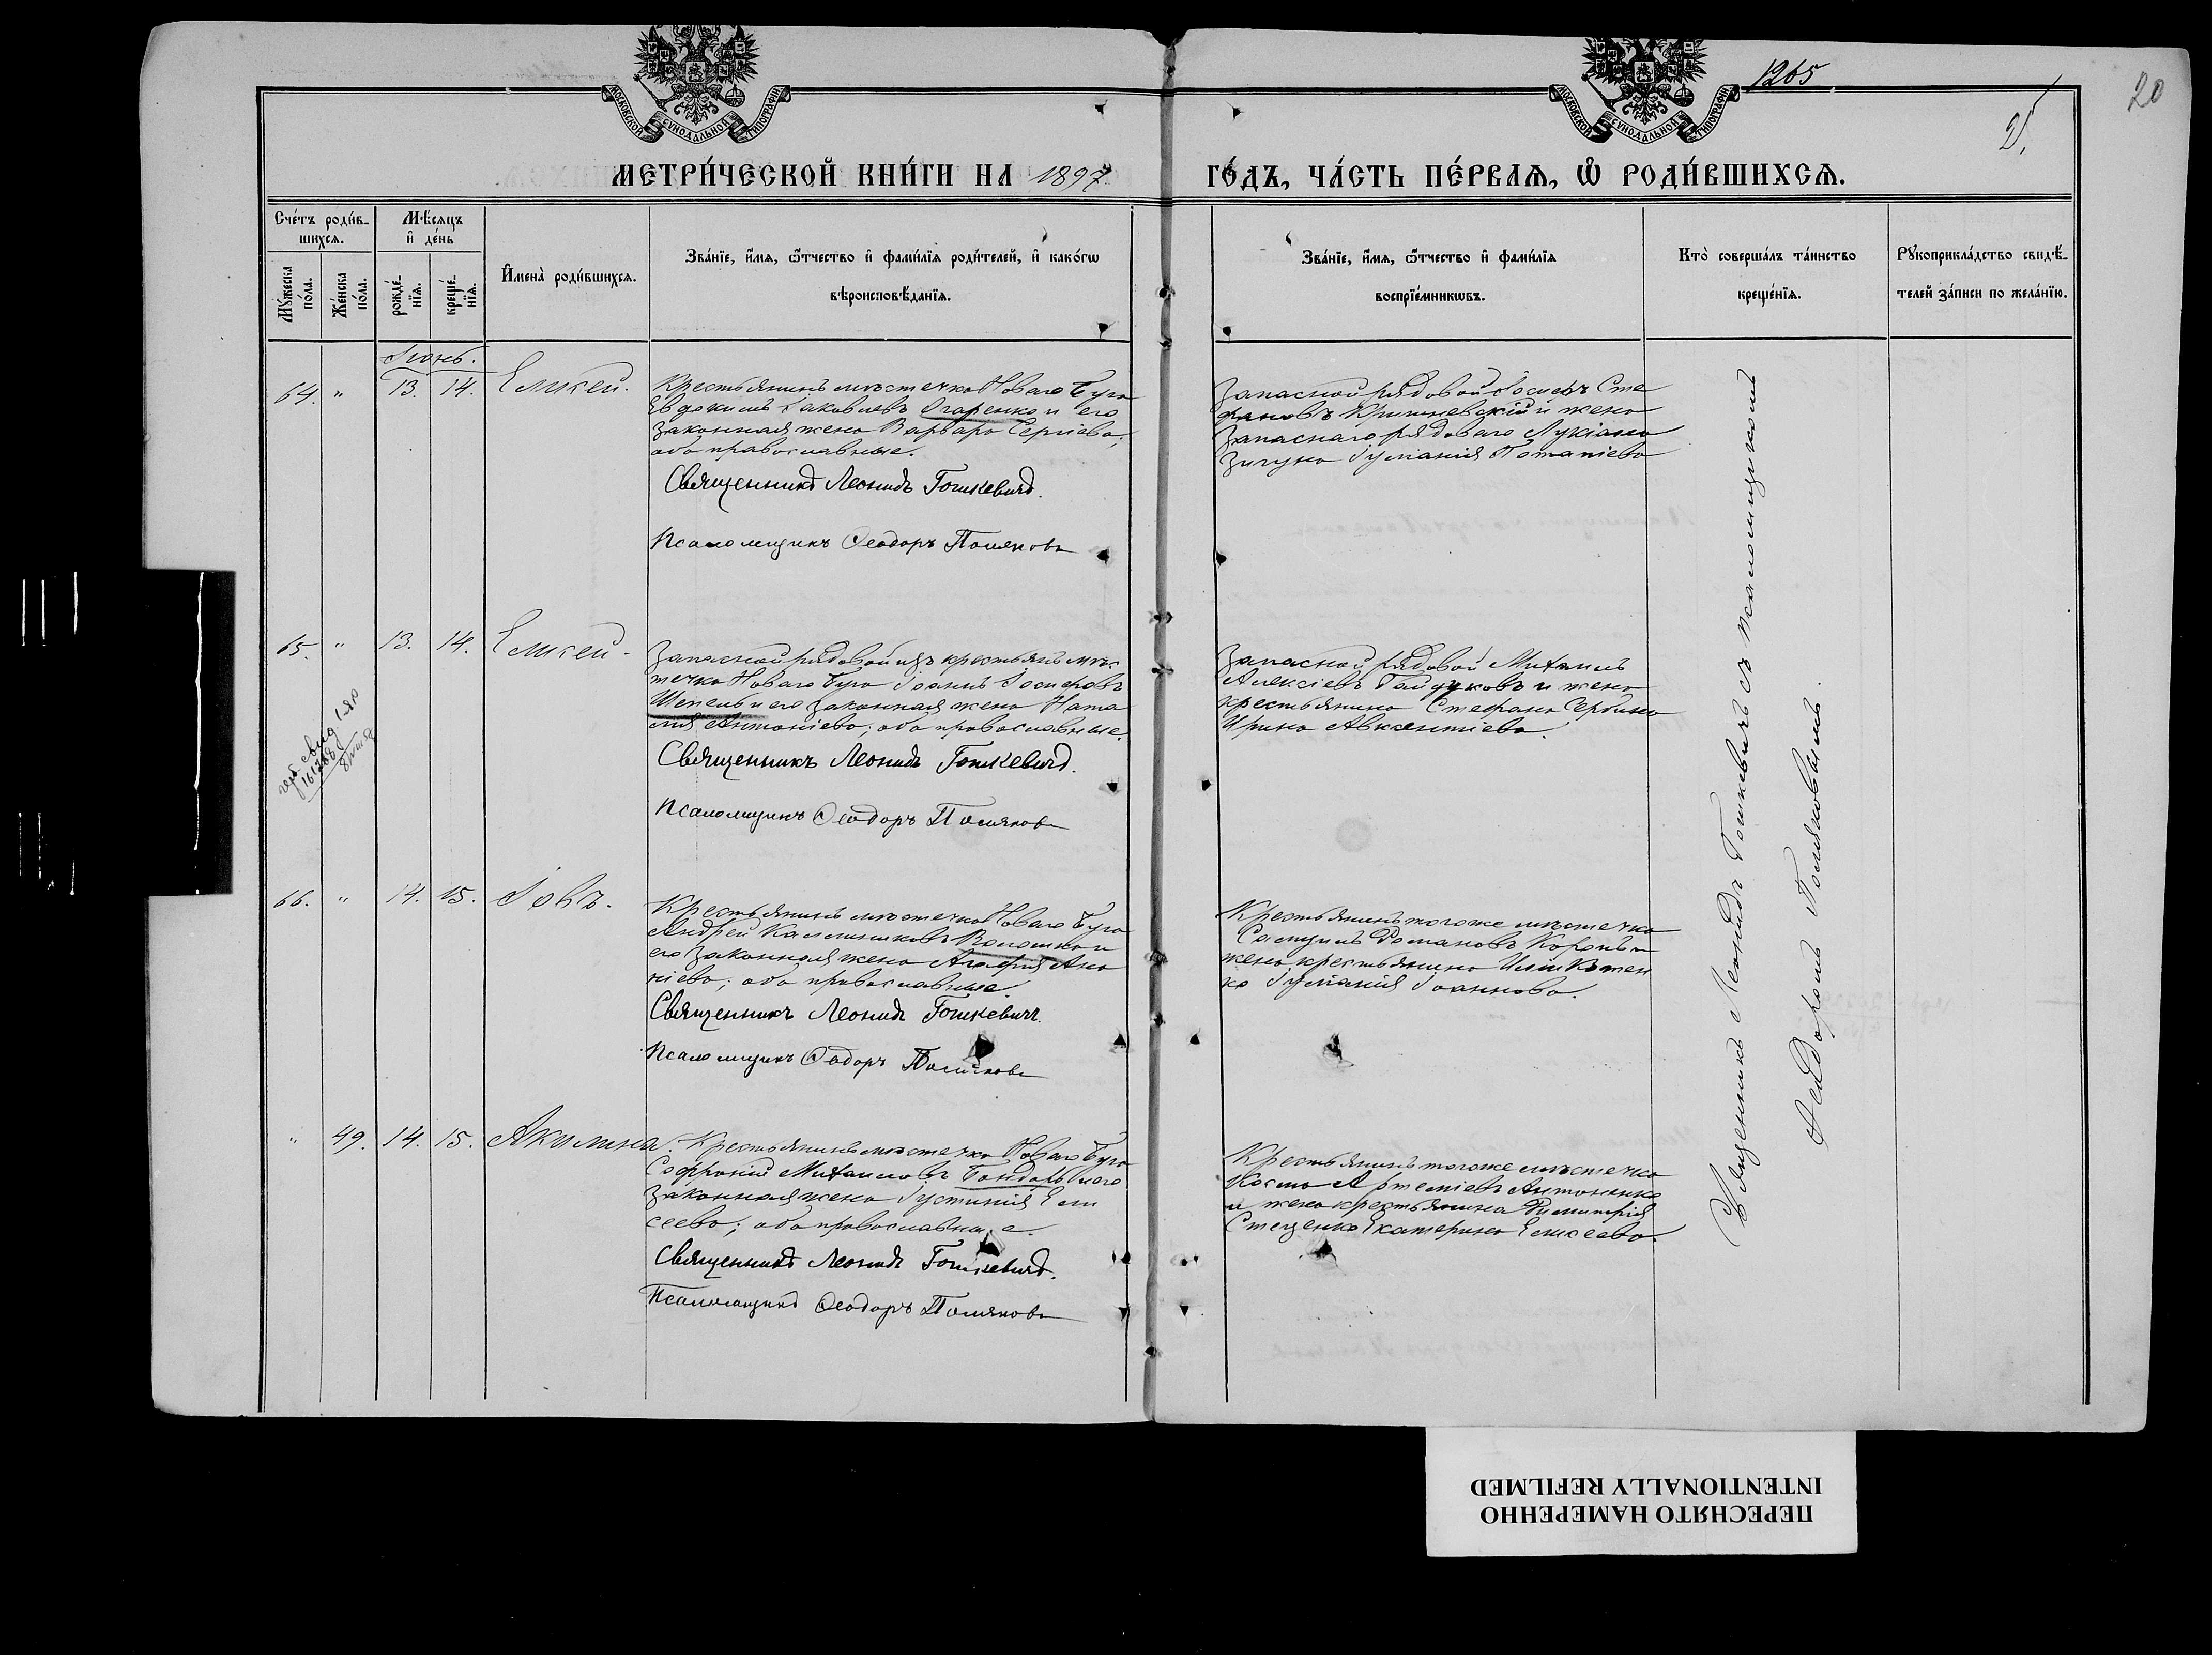 1265
20
МОСКОВСКОЙ СУНОДАЛЬНОЙ ТИПОГРАФІИ
МОСКОВСКОЙ СУНОДАЛЬНОЙ ТИПОГРАФІИ
МЕТРИ́ЧЕСКОЙ КНИ́ГИ НА 1897 ГО́ДЪ, ЧА́СТЬ ПЕ́РВАѦ, Ѡ РОДИ́ВШИХСѦ.
Сче́тъ роди́в-
шихсѧ.
Мѣ́сѧцъ
и҆ де́нь
Мꙋ́жеска
по́ла.
Же́нска
по́ла.
рожде́-
нїѧ.
креще́-
нїѧ.
И҆мена̀ роди́вшихсѧ.
Зва́нїе, и҆́мѧ, ѻ҆́тчество и҆ фами́лїѧ роди́телей, и҆ како́гѡ
вѣроисповѣ́данїѧ.
Зва́нїе, и҆́мѧ, ѻ҆́тчество и҆ фами́лїѧ
воспрїе́мникѡвъ.
Кто̀ соверша́лъ та́инство
креще́нїѧ.
Рꙋкоприкла́дство свидѣ́-
телей за́писи по жела́нїю.
Іюнь.
64. " 13. 14. Елисей.
Крестьянинъ мѣстечка Новаго Буга
Евдокимъ Іаковлевъ Огаренко и его
законная жена Варвара Сергіева,
оба православные.
Священникъ Леонидъ Гошкевичъ.
Псаломщикъ Ѳеодоръ Поляковъ
Запасной рядовой Іосифъ Сте
фановъ и жена
запаснаго рядоваго Лукіана
Зигуна Іуліанія Потапіева
65. " 13. 14. Елисей.
Запасной рядовой изъ крестьянъ мѣс
течка Новаго Буга Іоаннъ Іосифовъ
Шепель и его законная жена Ната
лія Антоніева; оба православные.
Священникъ Леонидъ Гошкевичъ.
Псаломщикъ Ѳеодоръ Поляковъ
Запасной рядовой Михаилъ
Алексіевъ Гайдуковъ и жена
крестьянина Стефана Сербина
Ирина Авксентіева.
66. " 14. 15. Іовъ.
Крестьянинъ мѣстечка Новаго Буга
Андрей Каллиниковъ Волошко и
его законная жена Агафія Ана
ніева; оба православные.
Священникъ Леонидъ Гошкевичъ.
Псаломщикъ Ѳеодоръ Поляковъ
Крестьянинъ тогоже мѣстечка
Самуилъ Романовъ и
жена крестьянина Иліи
ко Іуліанія Іоаннова.
" 49. 14. 15. Акилина.
Крестьянинъ мѣстечка Новаго Буга
Софроній Михаиловъ Бондарь и его
законная жена Іустинія Ели
сеева; оба православные.
Священникъ Леонидъ Гошкевичъ.
Псаломщикъ Ѳеодоръ Поляковъ
Крестьянинъ тогоже мѣстечка
Косма Артеміевъ Антоненко
и жена крестьянина Димитрія
Стеценко Екатерина Елисеева.
Священникъ Леонидъ Гошкевичъ съ псаломщикомъ
Ѳеодоромъ Поляковымъ.
ПЕРЕСНЯТО НАМЕРЕННО
INTENTIONALLY REFILMED